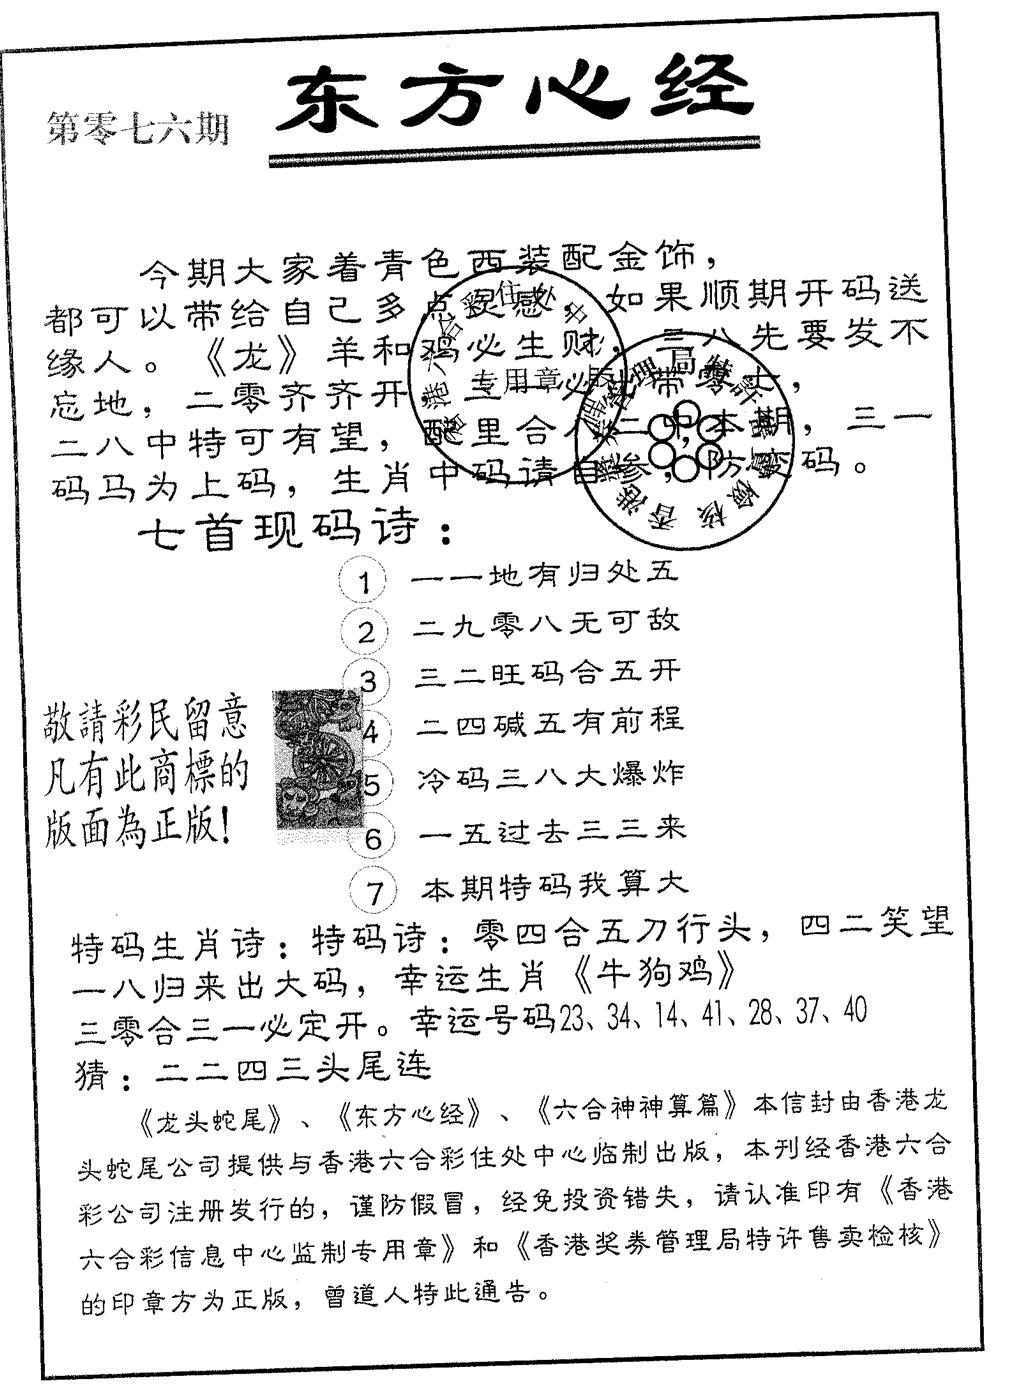 东方心经
第零七六期
今期大家着青色西装配金饰，
都可以带给自己多点灵感，如果顺期开码送
缘人。《龙》羊和鸡必生财，三八先要发不
忘地，二零齐齐开，三一必出带零七，
二八中特可有望， 里合 二中本期，三一
码马为上码，生肖中码请自参，防变码。
专用章
七首现码诗：
1 一一地有归处五
2 二九零八无可敌
3 三二旺码合五开
4 二四碱五有前程
5 冷码三八大爆炸
6 一五过去三三来
7 本期特码我算大
敬請彩民留意
凡有此商標的
版面為正版!
特码生肖诗：特码诗：零四合五刀行头，四二笑望
一八归来出大码，幸运生肖《牛狗鸡》
三零合三一必定开。幸运号码23、34、14、41、28、37、40
猜：二二四三头尾连
《龙头蛇尾》、《东方心经》、《六合神神算篇》本信封由香港龙
头蛇尾公司提供与香港六合彩住处中心临制出版，本刊经香港六合
彩公司注册发行的，谨防假冒，经免投资错失，请认准印有《香港
六合彩信息中心监制专用章》和《香港奖券管理局特许售卖检核》
的印章方为正版，曾道人特此通告。